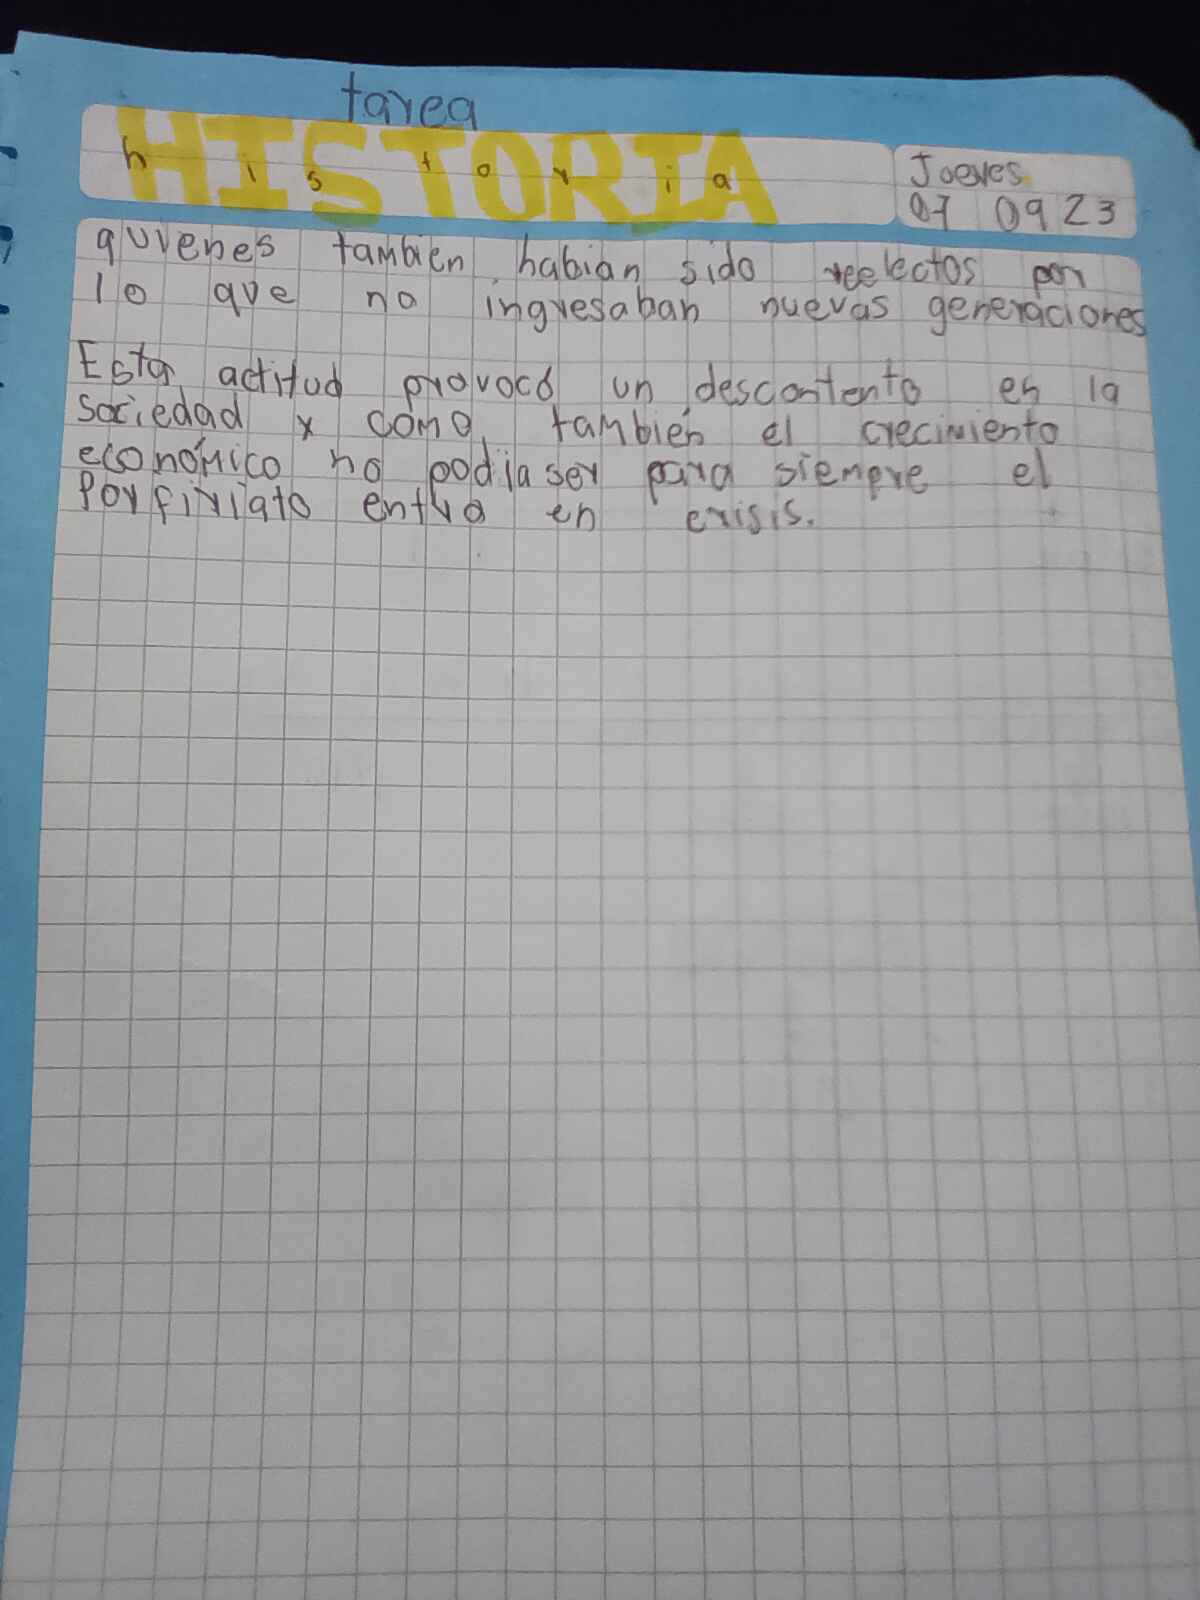 tarea
HISTORIA
historia
Joeves
07 09 23
quienes tambien habian sido reelectos por
lo que no ingresaban nuevas generaciones
Esta actitud provocó un descontento en la
sociedad y como también el crecimiento
económico no podia ser para siempre el
Porfiriato entra en crisis.